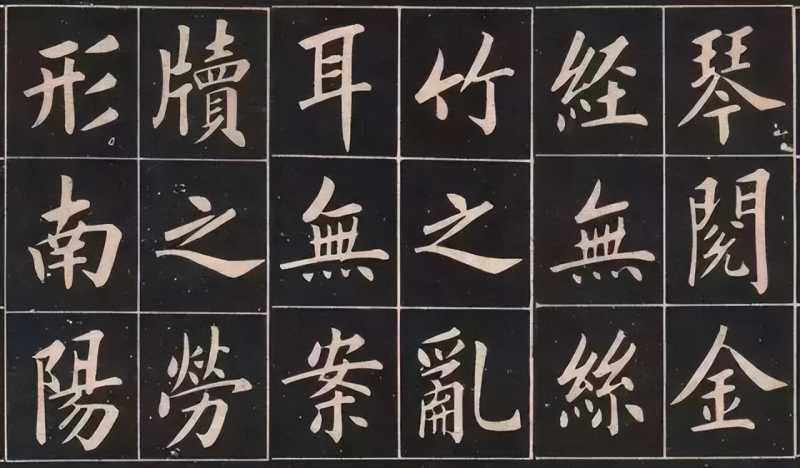 琴閱金
経無絲
竹之亂
耳無案
牘之勞
形南陽